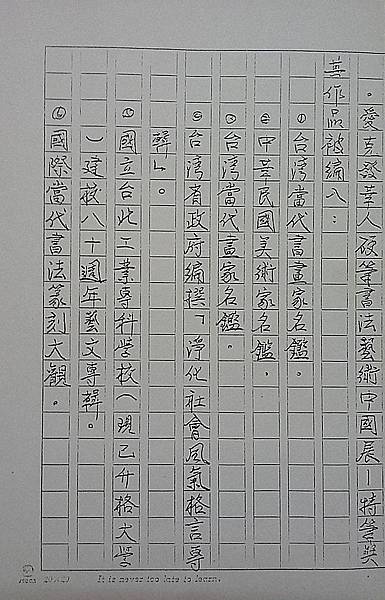 。愛克發華人硬筆書法藝術中國展—特等獎
其作品被編入:
①台灣當代書畫家名鑑。
②中華民國美術家名鑑,
③台灣當代畫家名鑑。
④台灣省政府編撰「淨化社會風氣格言專
輯」。
⑤國立台北工業專科學校(現已升格大學
)建校八十週年藝文專輯。
⑥國際當代書法篆刻大觀。
20×20 It is never too late to learn.